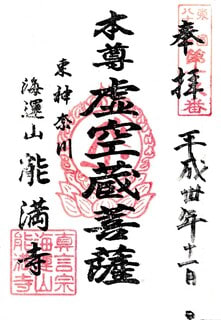 奉拝
平成卅年十一月 日
本尊 虚空蔵菩薩
東神奈川
海運山 能満寺
真言宗
海運山
能満寺